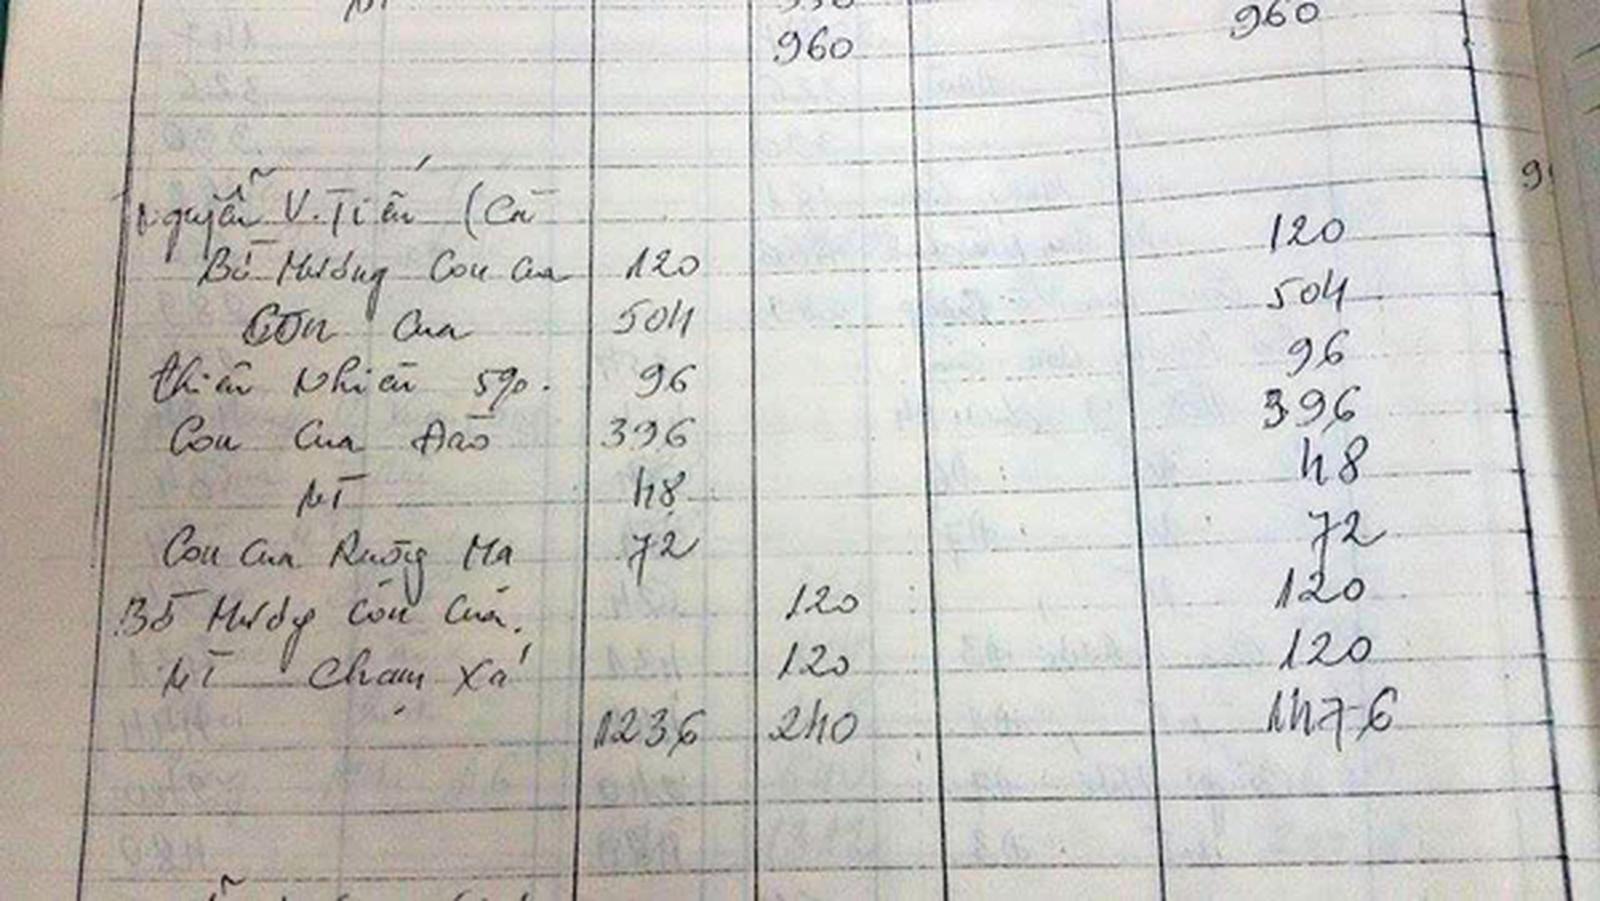 960 960
Nguyễn V. Tiến (Cà
Bờ Mương Con Cua 120 120
Cồn Cua 504 504
thiên Nhiên 5% 96 96
Con Cua Đào 396 396
NT 48 48
Con Cua Ruộng Ma 72 72
Bờ Mương Con Cua 120 120
NT Chám Xá 120 120
1236 240 1476